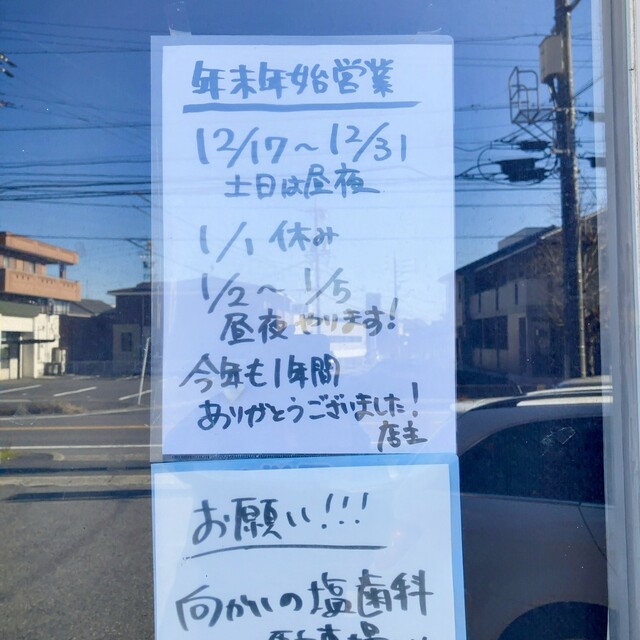 年末年始営業
12/17〜12/31
土日は昼夜
1/1 休み
1/2〜1/5
昼夜やります!
今年も1年間
ありがとうございました!
店主
お願い!!!
向かいの塩歯科